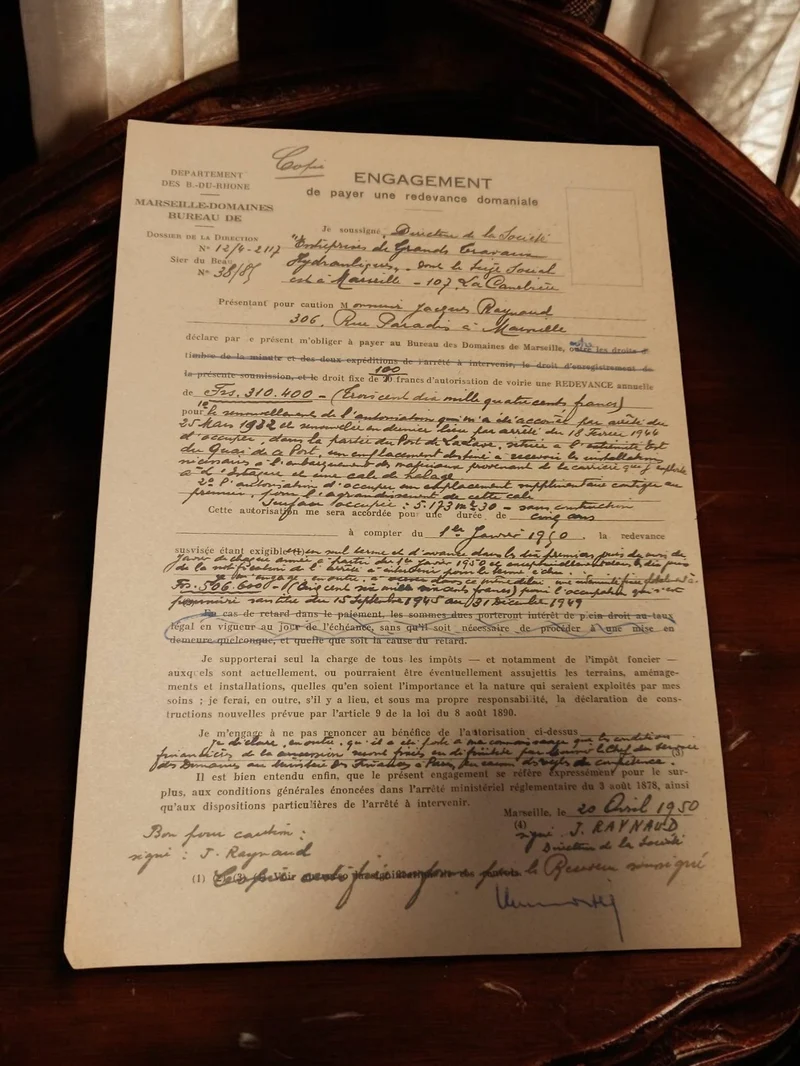 Copie
DEPARTEMENT
DES B.-DU-RHONE
MARSEILLE-DOMAINES
BUREAU DE
DOSSIER DE LA DIRECTION
N° 12/4-2117
Sier du Beau
N° 38/85
ENGAGEMENT
de payer une redevance domaniale
Je soussigné, Directeur de la Société
"Entreprises de Grands Travaux
Hydrauliques, dont le Siège Social
est à Marseille - 107, La Canebière
Présentant pour caution Monsieur Jacques Raynaud
306, Rue Paradis à Marseille
déclare par e présent m'obliger à payer au Bureau des Domaines de Marseille, outre les droits
timbre de la minute et des deux expéditions de l'arrêté à intervenir, le droit d'enregistrement de
100
la présente soumission, et le droit fixe de francs d'autorisation de voirie une REDEVANCE annuelle
de Frs. 310.400 - (trois cent dix mille quatre cents francs)
pour 1° le renouvellement de l'autorisation qui m'a été accordée par arrêté du
25 Mars 1932 et renouvelée en dernier lieu par arrêté du 18 Février 1944
d'occuper, dans la partie du Port de La Lave, située à l'extrémité Est
du Quai de ce Port, un emplacement destiné à recevoir les installations
nécessaires à l'embarquement des matériaux provenant de la carrière que j'exploite
à l'Estaque et une cale de halage
2° l'autorisation d'occuper un emplacement supplémentaire contigu au
premier, pour l'agrandissement de cette cale
Surface occupée : 5.173 m² 30 - sans construction
Cette autorisation me sera accordée pour une durée de cinq ans
à compter du 1er Janvier 1950 la redevance
susvisée étant exigible (1) en un seul terme et d'avance dans les dix premiers jours du mois de
Janvier de chaque année à partir du 1er Janvier 1950 et exceptionnellement dans les dix jours
de la notification de l'arrêté à intervenir pour le terme échu.
Je m'engage en outre, à verser dans ce même délai une indemnité fixée à
Frs. 506.600 - (Cinq cent six mille six cents francs) pour l'occupation qui s'est
poursuivie sans titre du 15 Septembre 1945 au 31 Décembre 1949
En cas de retard dans le paiement, les sommes dues porteront intérêt de plein droit au taux
légal en vigueur au jour de l'échéance, sans qu'il soit nécessaire de procéder à une mise en
demeure quelconque, et quelle que soit la cause du retard.
Je supporterai seul la charge de tous les impôts — et notamment de l'impôt foncier —
auxquels sont actuellement, ou pourraient être éventuellement assujettis les terrains, aménage-
ments et installations, quelles qu'en soient l'importance et la nature qui seraient exploités par mes
soins ; je ferai, en outre, s'il y a lieu, et sous ma propre responsabilité, la déclaration de cons-
tructions nouvelles prévue par l'article 9 de la loi du 8 août 1890.
Je m'engage à ne pas renoncer au bénéfice de l'autorisation ci-dessus
Je déclare, en outre, qu'il a été porté à ma connaissance que les conditions
financières de la concession seront fixées en définitive par Monsieur le Chef du Service
des Domaines au Ministère des Finances à Paris, en raison des règles de compétence. (3)
Il est bien entendu enfin, que le présent engagement se réfère expressément pour le sur-
plus, aux conditions générales énoncées dans l'arrêté ministériel réglementaire du 3 août 1878, ainsi
qu'aux dispositions particulières de l'arrêté à intervenir.
Marseille, le 20 Avril 1950
(4)
signé J. RAYNAUD
Directeur de la Société
Bon pour caution :
signé : J. Raynaud
(1) (2) (3) Voir
Copie certifiée par le Receveur soussigné